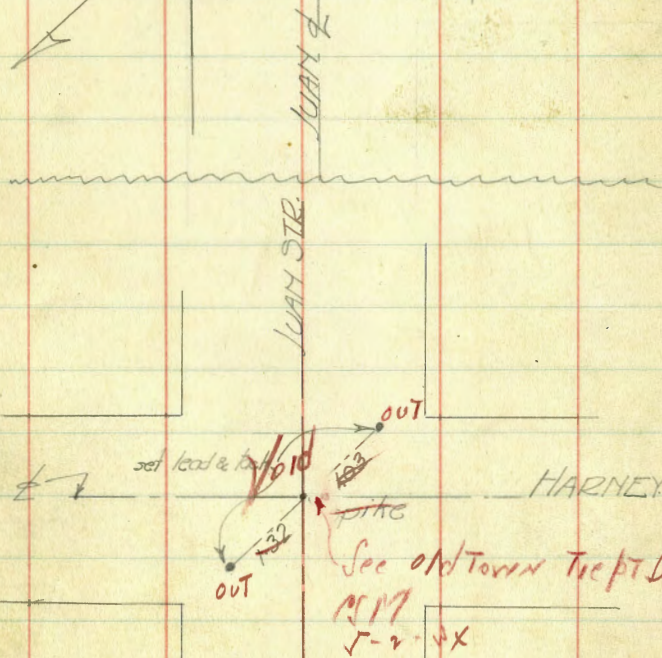 JUAN ℄
JUAN STR.
OUT
set lead &
Void
℄
HARNEY
pike
132
OUT
See Old Town Tie pT